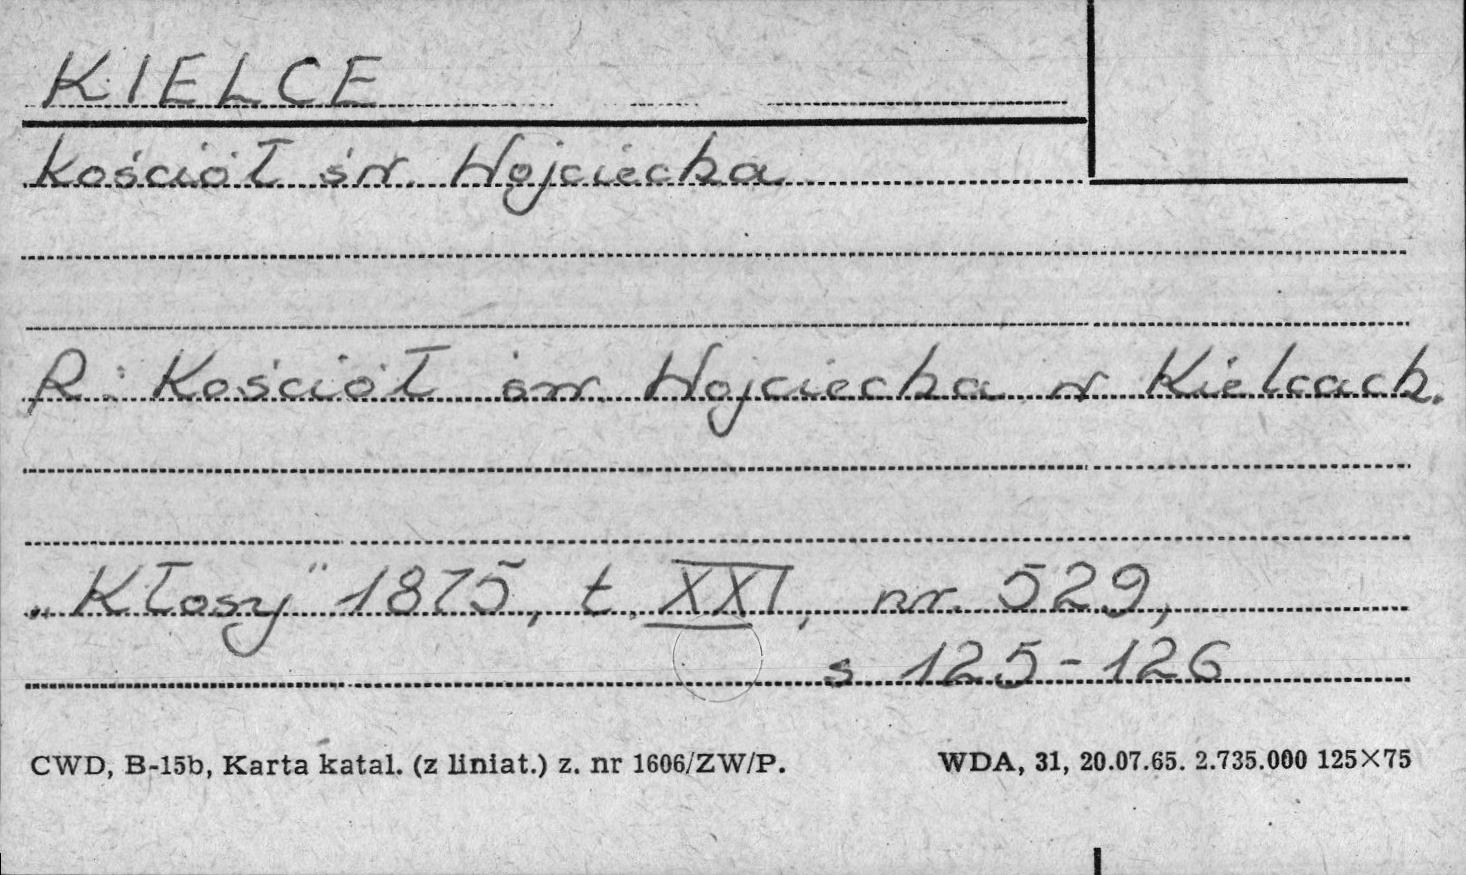 KIELCE
Kościół św. Wojciecha
R: Kościół św. Wojciecha w Kielcach.
„Kłosy" 1875, t. XXI, nr. 529,
s 125-126
CWD, B-15b, Karta katal. (z liniat.) z. nr 1606/ZW/P. WDA, 31, 20.07.65. 2.735.000 125×75